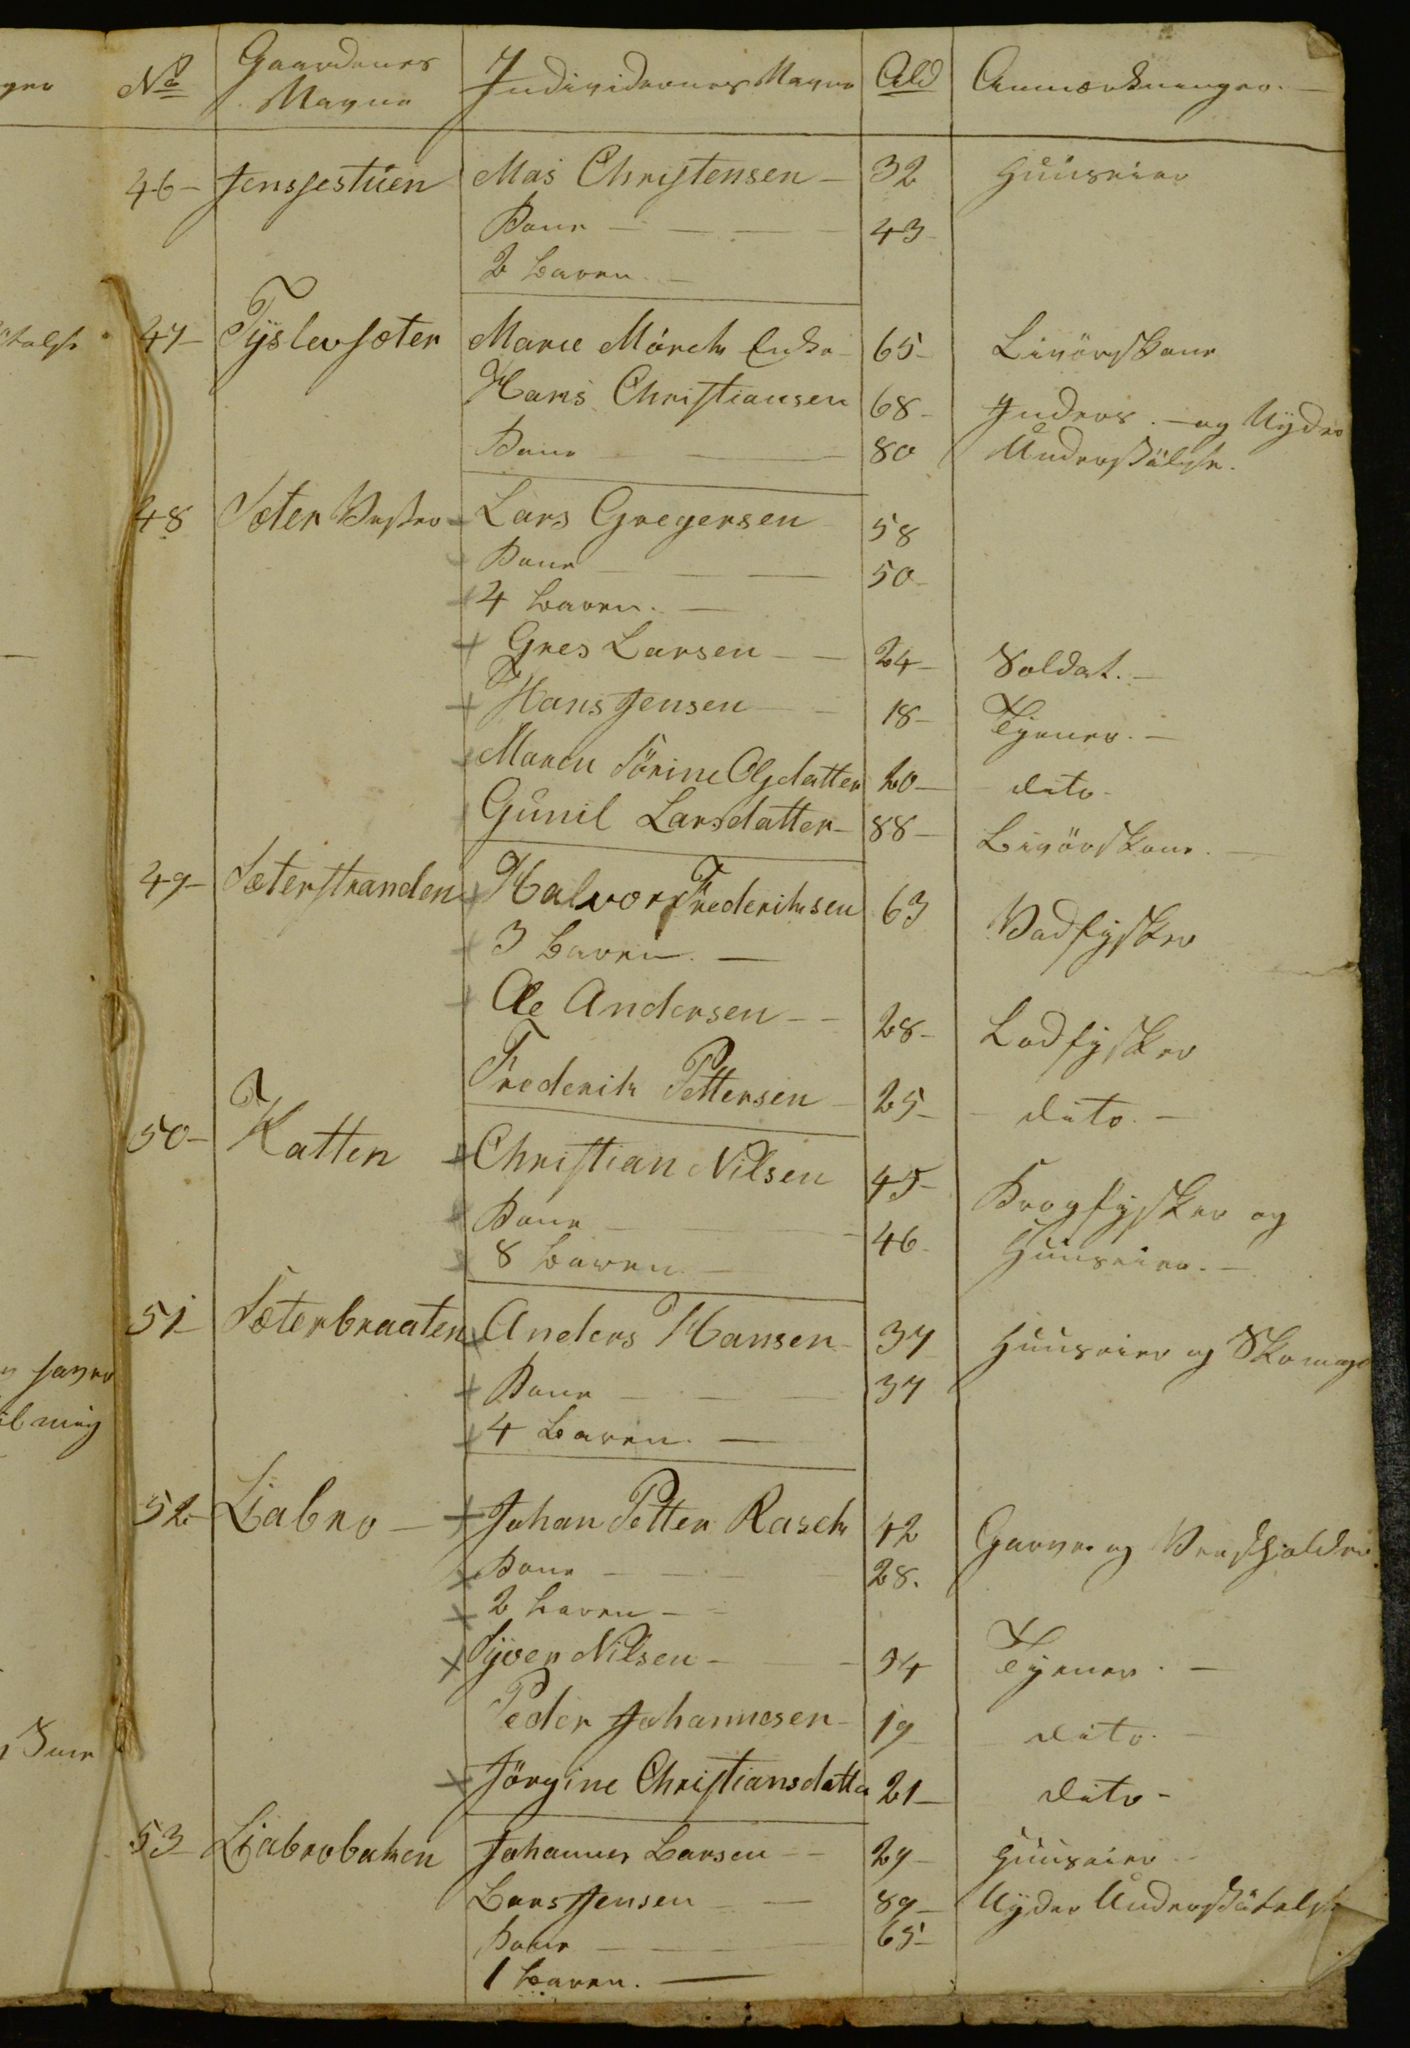 No Gaardenes Navne Individernes Navne Ald Anmærkninger.
46 Jenssestuen Mas Christensen 32 Huuseier
Kone 43
2 Børn
47 Tyslevsæter Marie Mörch Enke 65 Livörskone
Hans Christiansen 68 Inders. og Nyder
Kone 80 Understöttelse.
48 Sæter Vestre Lars Gregersen 58
Kone 50
4 Børn.
Gres Larsen 24 Soldat.
Hans Jensen 18 Tjener.
Maren Sörine Olsdatter 20 dito
Gunil Larsdatter 88 Livörskone.
49 Sæterstranden Halvor Frederiksen 63 Vadfysker
3 Børn.
Ole Andersen 28 Vadfysker
Frederik Pettersen 25 dito.
50 Katten Christian Nilsen 45 Krogfysker og
Kone 46 Huuseier.
8 Børn
51 Sæterbraaten Anders Hansen 37 Huuseier og Skomage
Kone 37
4 Børn.
52 Liabro Johan Petter Rasch 42 Garver og Vertsholder
Kone 28.
2 Børn
Syver Nilsen 54 Tjener.
Peder Johannesen 19 dito.
Jörgine Christiansdatter 21 dito
53 Liabrobaken Johannes Larsen 29 Huuseier
Lars Jensen 89 Nyder Understöttelse
Kone 65
1 Barn.